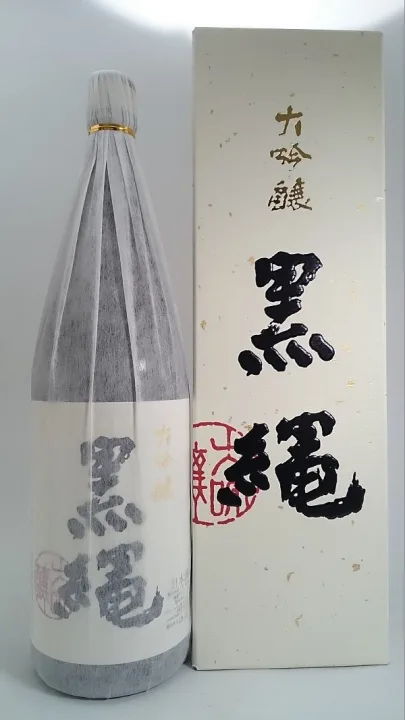 大吟醸
黒縄
大吟醸
黒縄